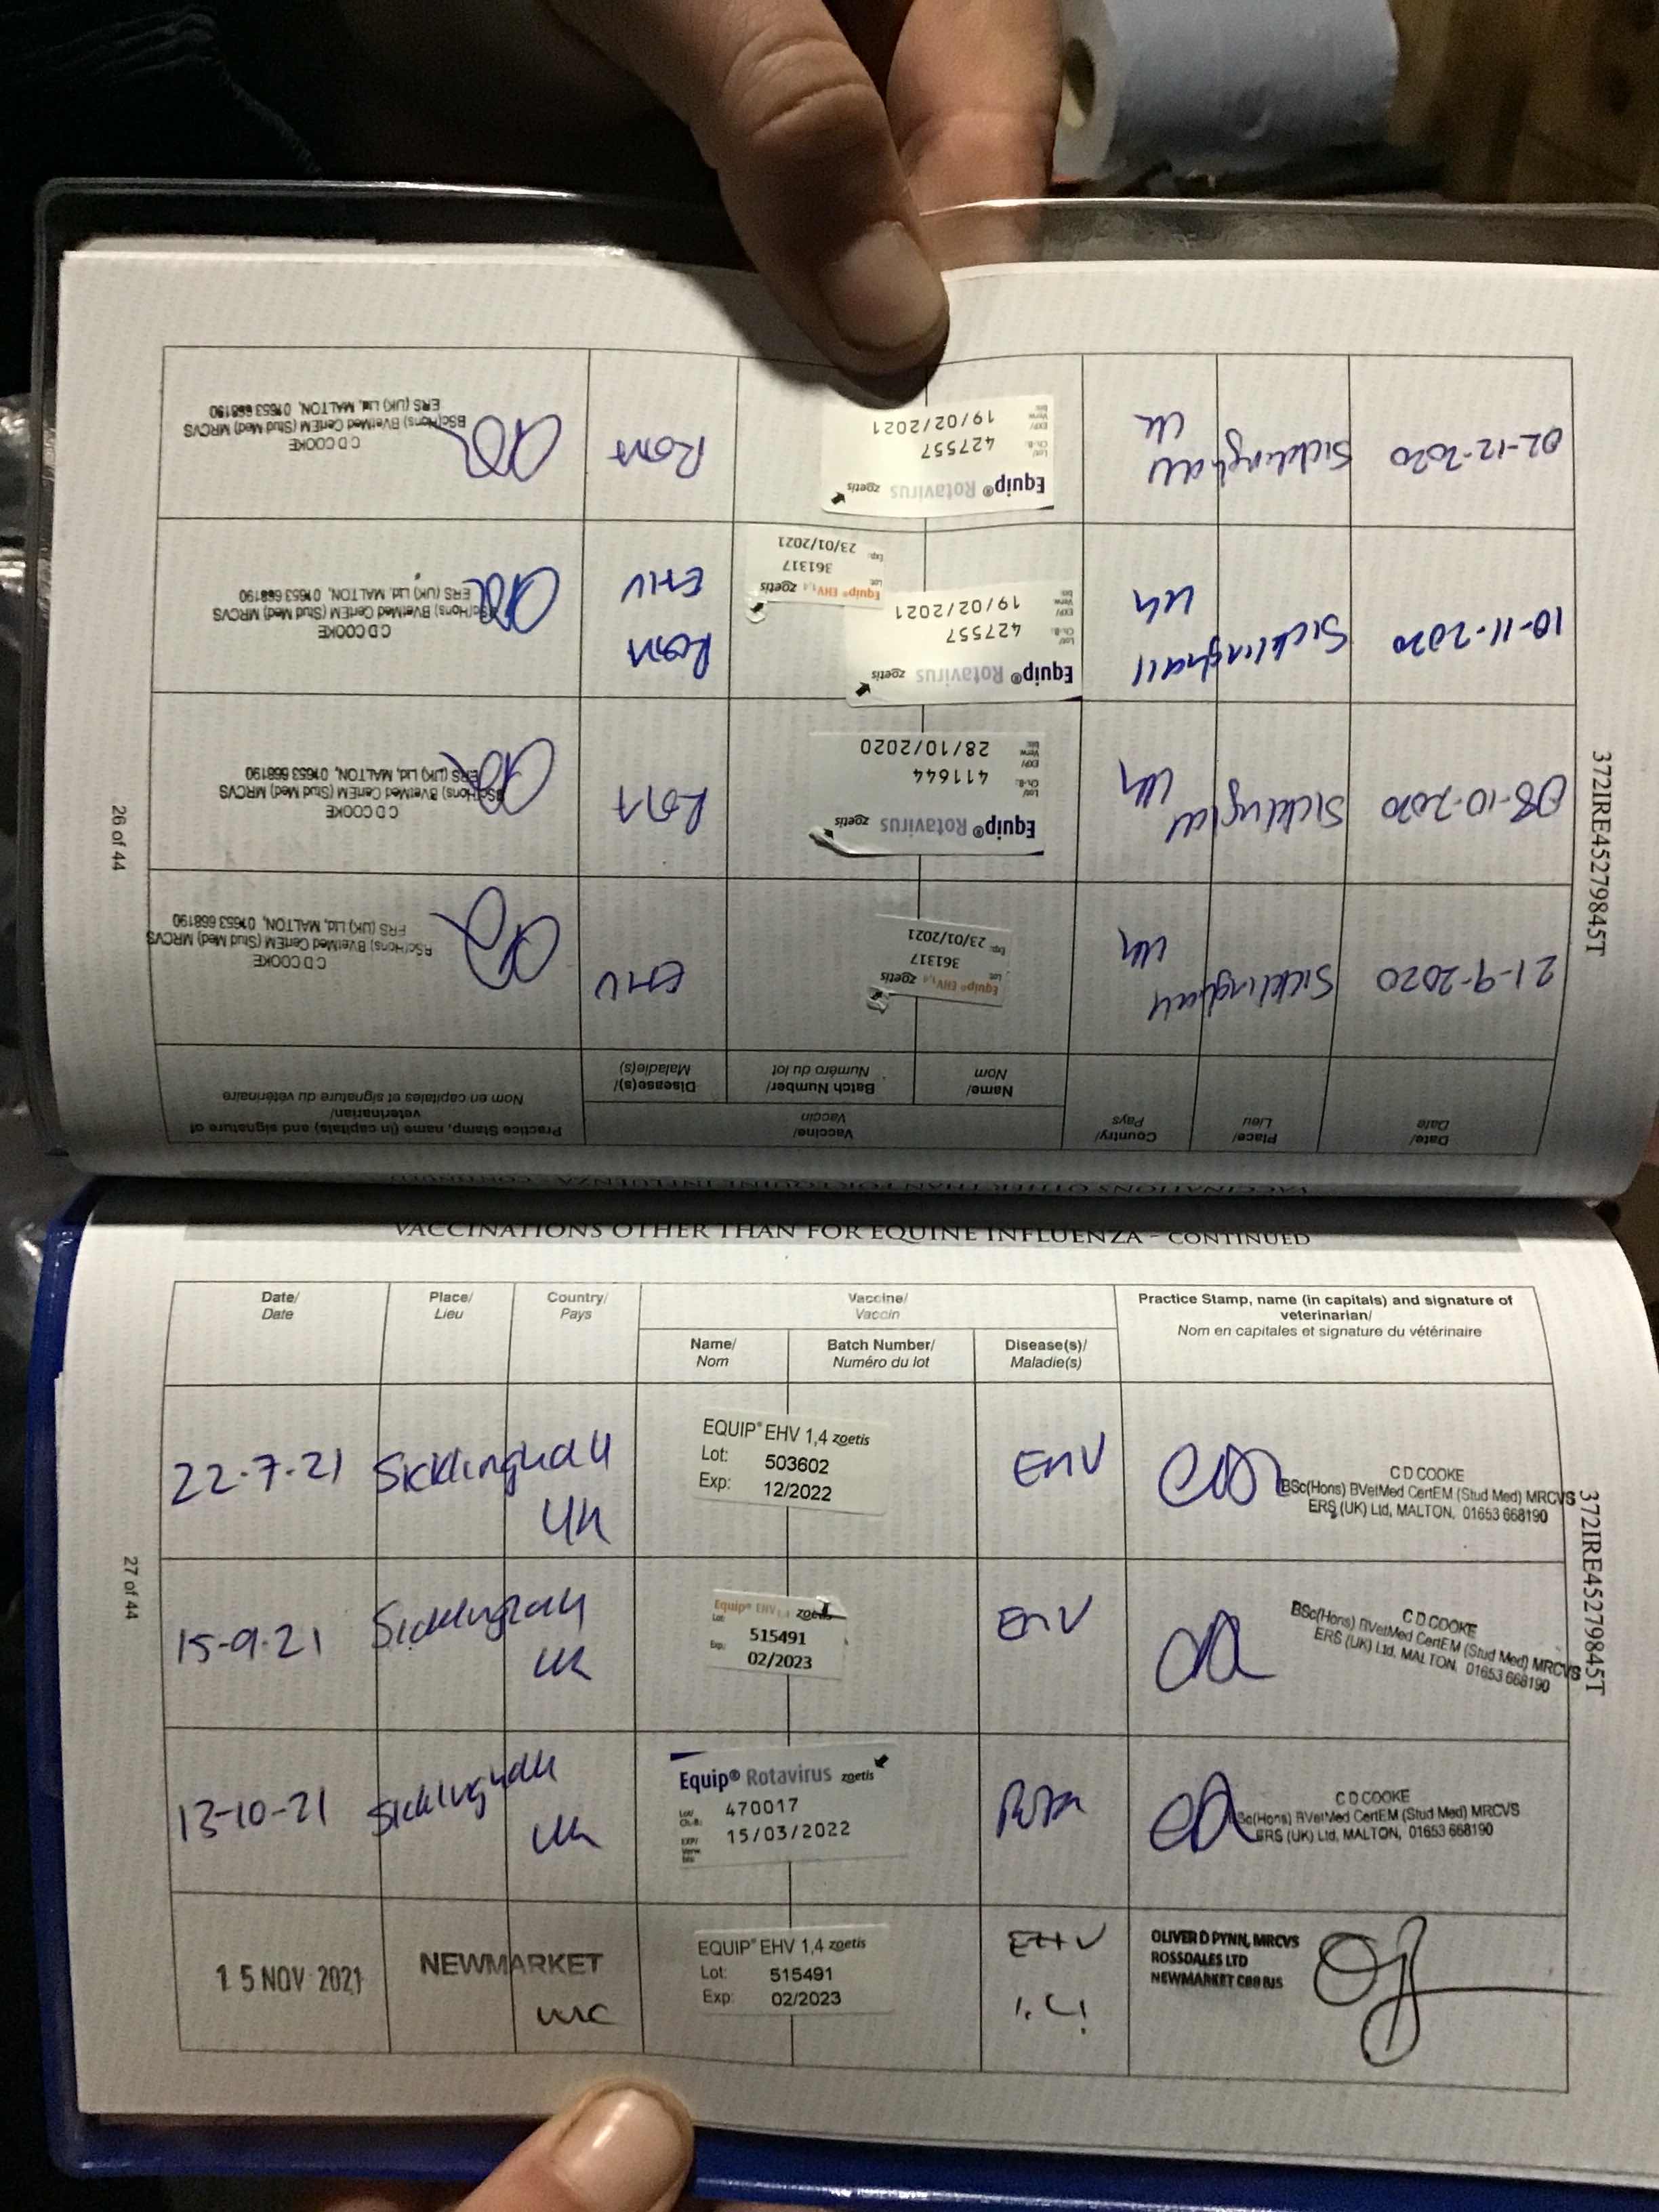 VACCINATIONS OTHER THAN FOR EQUINE INFLUENZA - CONTINUED
Date/
Date
Place/
Lieu
Country/
Pays
Vaccine/
Vaccin
Name/
Nom
Batch Number/
Numéro du lot
Disease(s)/
Maladie(s)
Practice Stamp, name (in capitals) and signature of
veterinarian/
Nom en capitales et signature du vétérinaire
21-9-2020
Sicklinghall
UK
Equip® EHV 1,4 zoetis
Lot: 361317
Exp: 23/01/2021
EHV
C D COOKE
BSc(Hons) BVetMed CertEM (Stud Med) MRCVS
ERS (UK) Ltd, MALTON, 01653 668190
08-10-2020
Sicklinghall
UK
Equip® Rotavirus zoetis
Lot/ Ch.-B.: 411644
EXP/ Verw. bis: 28/10/2020
Rota
C D COOKE
BSc(Hons) BVetMed CertEM (Stud Med) MRCVS
ERS (UK) Ltd, MALTON, 01653 668190
10-11-2020
Sicklinghall
UK
Equip® Rotavirus zoetis
Lot/ Ch.-B.: 427557
EXP/ Verw. bis: 19/02/2021
Equip® EHV 1,4 zoetis
Lot: 361317
Exp: 23/01/2021
Rota
EHV
C D COOKE
BSc(Hons) BVetMed CertEM (Stud Med) MRCVS
ERS (UK) Ltd, MALTON, 01653 668190
02-12-2020
Sicklinghall
UK
Equip® Rotavirus zoetis
Lot/ Ch.-B.: 427557
EXP/ Verw. bis: 19/02/2021
Rota
C D COOKE
BSc(Hons) BVetMed CertEM (Stud Med) MRCVS
ERS (UK) Ltd, MALTON, 01653 668190
372IRE45279845T
26 of 44
VACCINATIONS OTHER THAN FOR EQUINE INFLUENZA - CONTINUED
Date/
Date
Place/
Lieu
Country/
Pays
Vaccine/
Vaccin
Name/
Nom
Batch Number/
Numéro du lot
Disease(s)/
Maladie(s)
Practice Stamp, name (in capitals) and signature of
veterinarian/
Nom en capitales et signature du vétérinaire
22-7-21
Sicklinghall
UK
EQUIP® EHV 1,4 zoetis
Lot: 503602
Exp: 12/2022
EHV
C D COOKE
BSc(Hons) BVetMed CertEM (Stud Med) MRCVS
ERS (UK) Ltd, MALTON, 01653 668190
15-9-21
Sicklinghall
UK
Equip® EHV 1,4 zoetis
Lot: 515491
Exp: 02/2023
EHV
C D COOKE
BSc(Hons) BVetMed CertEM (Stud Med) MRCVS
ERS (UK) Ltd, MALTON, 01653 668190
13-10-21
Sicklinghall
UK
Equip® Rotavirus zoetis
Lot/ Ch.-B.: 470017
EXP/ Verw. bis: 15/03/2022
Rota
C D COOKE
BSc(Hons) BVetMed CertEM (Stud Med) MRCVS
ERS (UK) Ltd, MALTON, 01653 668190
15 NOV 2021
NEWMARKET
UK
EQUIP® EHV 1,4 zoetis
Lot: 515491
Exp: 02/2023
EHV
1,4
OLIVER D PYNN, MRCVS
ROSSDALES LTD
NEWMARKET
372IRE45279845T
27 of 44